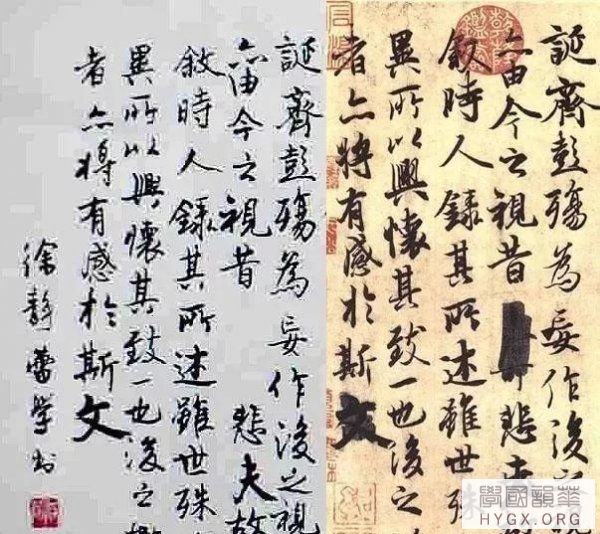 誕齊彭殤為妄作後之視
亦由今之視昔悲夫故
敘時人錄其所述雖世殊
異所以興懷其致一也後之
者亦將有感於斯文
徐靜蕾學書
誕齊彭殤為妄作後
亦由今之視昔悲夫
敘時人錄其所述雖世
異所以興懷其致一也後之
者亦將有感於斯文
華韻國學
HYGX.ORG